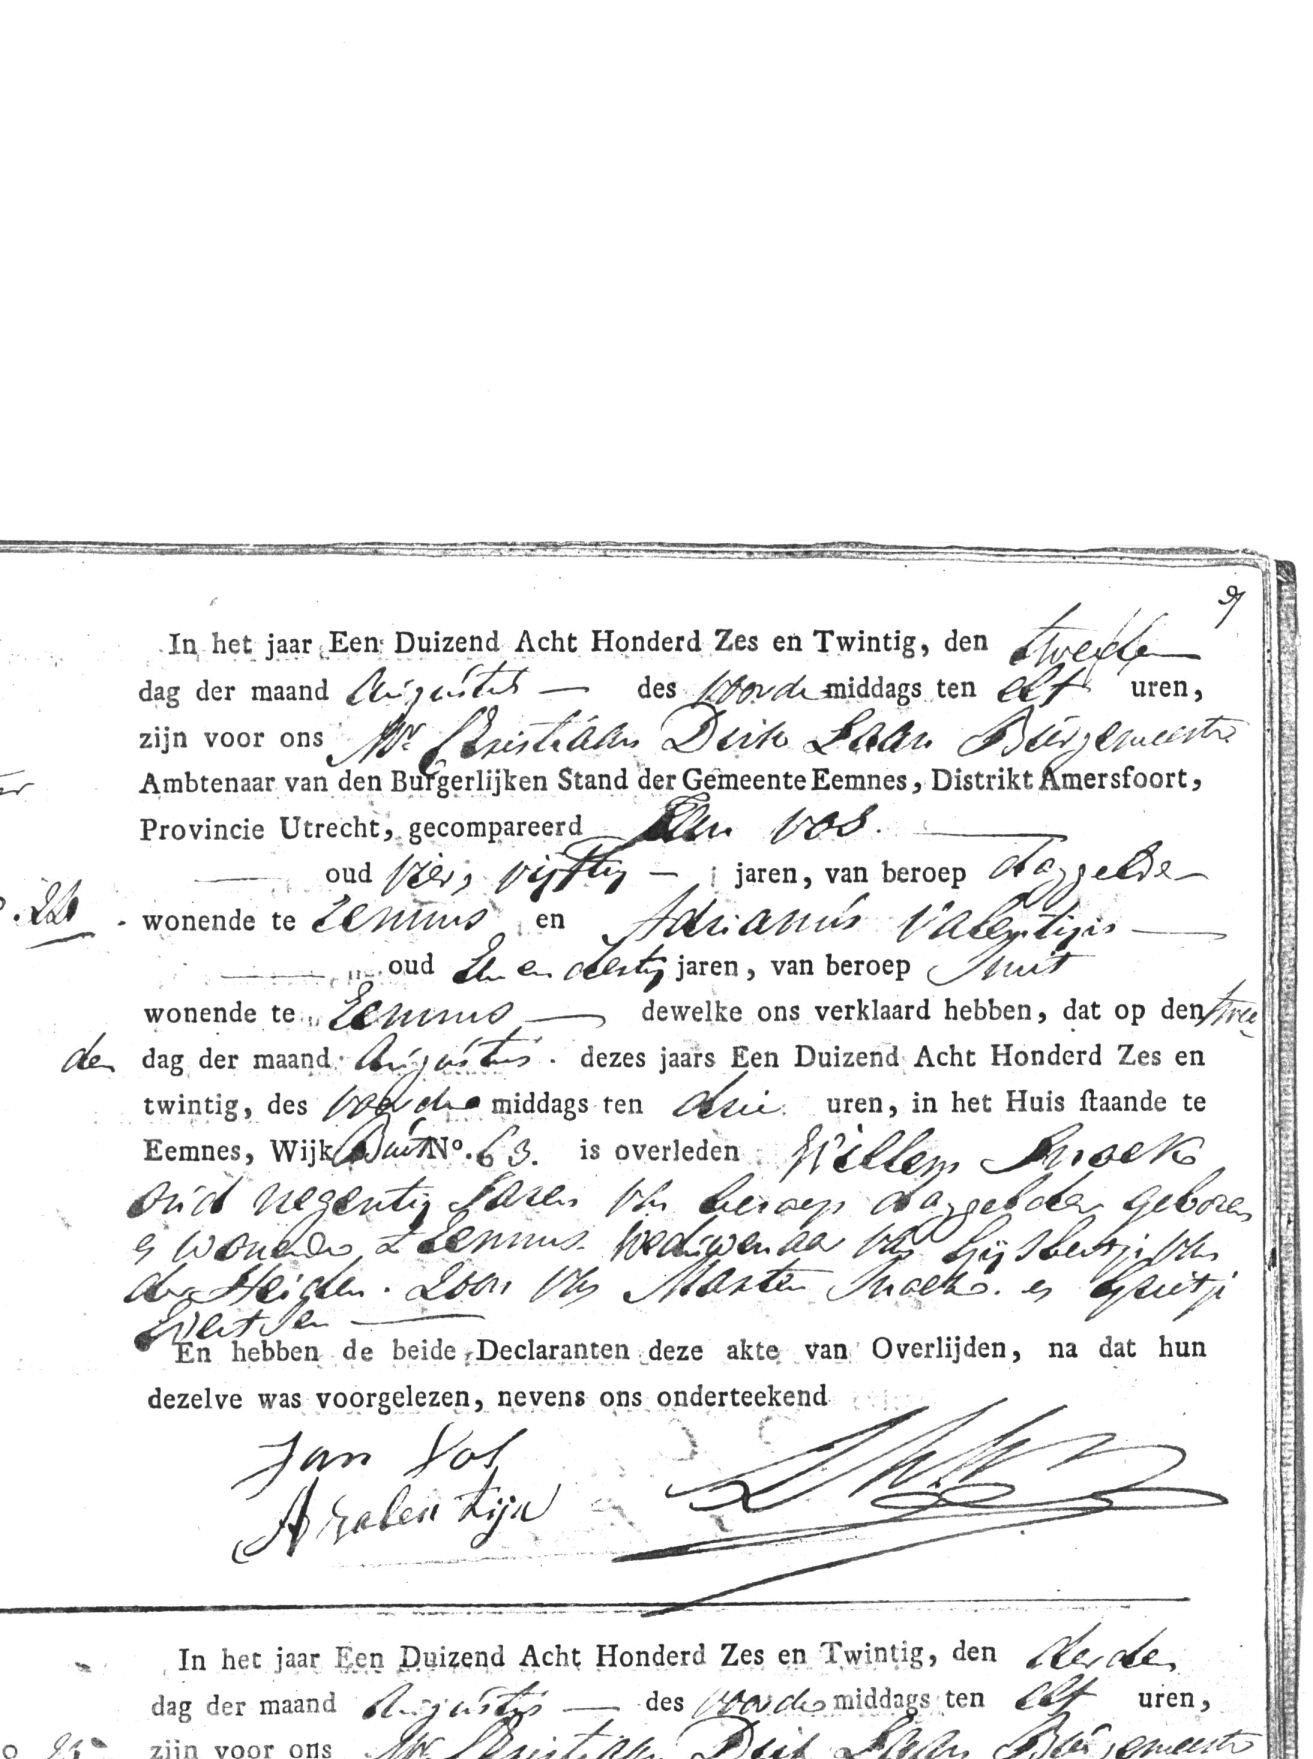 9
In het jaar Een Duizend Acht Honderd Zes en Twintig, den tweeden
dag der maand Augustus des voorde middags ten elf uren,
zijn voor ons Mr Christiaan Dirk Laan Burgemeester
Ambtenaar van den Burgerlijken Stand der Gemeente Eemnes, Distrikt Amersfoort,
Provincie Utrecht, gecompareerd Jan Vos.
oud vier, vijftig jaren, van beroep daggelder
wonende te Eemnes en Adrianus Valentijn
oud Een en dertig jaren, van beroep Smit
wonende te Eemnes dewelke ons verklaard hebben, dat op den twee
den dag der maand Augustus. dezes jaars Een Duizend Acht Honderd Zes en
twintig, des voorde middags ten drie uren, in het Huis staande te
Eemnes, Wijk Buit No. 63. is overleden Willem Snoek
oud negentig Jaren van beroep daggelder geboren
en wonende te Eemnes. Weduwenaar van Gijsbertje van
der Heiden. Zoon van Marten Snoek. en Grietje
Evertsen
En hebben de beide Declaranten deze akte van Overlijden, na dat hun
dezelve was voorgelezen, nevens ons onderteekend
Jan Vos
A Valentijn
In het jaar Een Duizend Acht Honderd Zes en Twintig, den derden
dag der maand Augustus des voorde middags ten elf uren,
zijn voor ons Mr Christiaan Dirk Laan Burgemeester